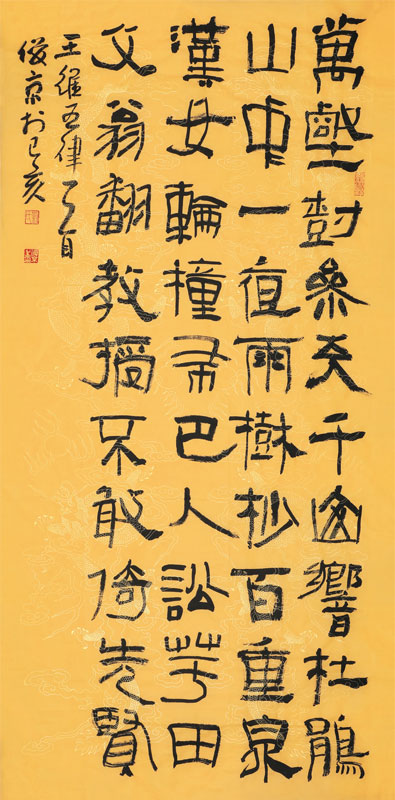 萬壑尌參天千山響杜鵑
山中一夜雨樹杪百重泉
漢女輪橦布巴人訟芋田
文翁翻教授不敢倚先賢
王維五律一首
俊京於己亥